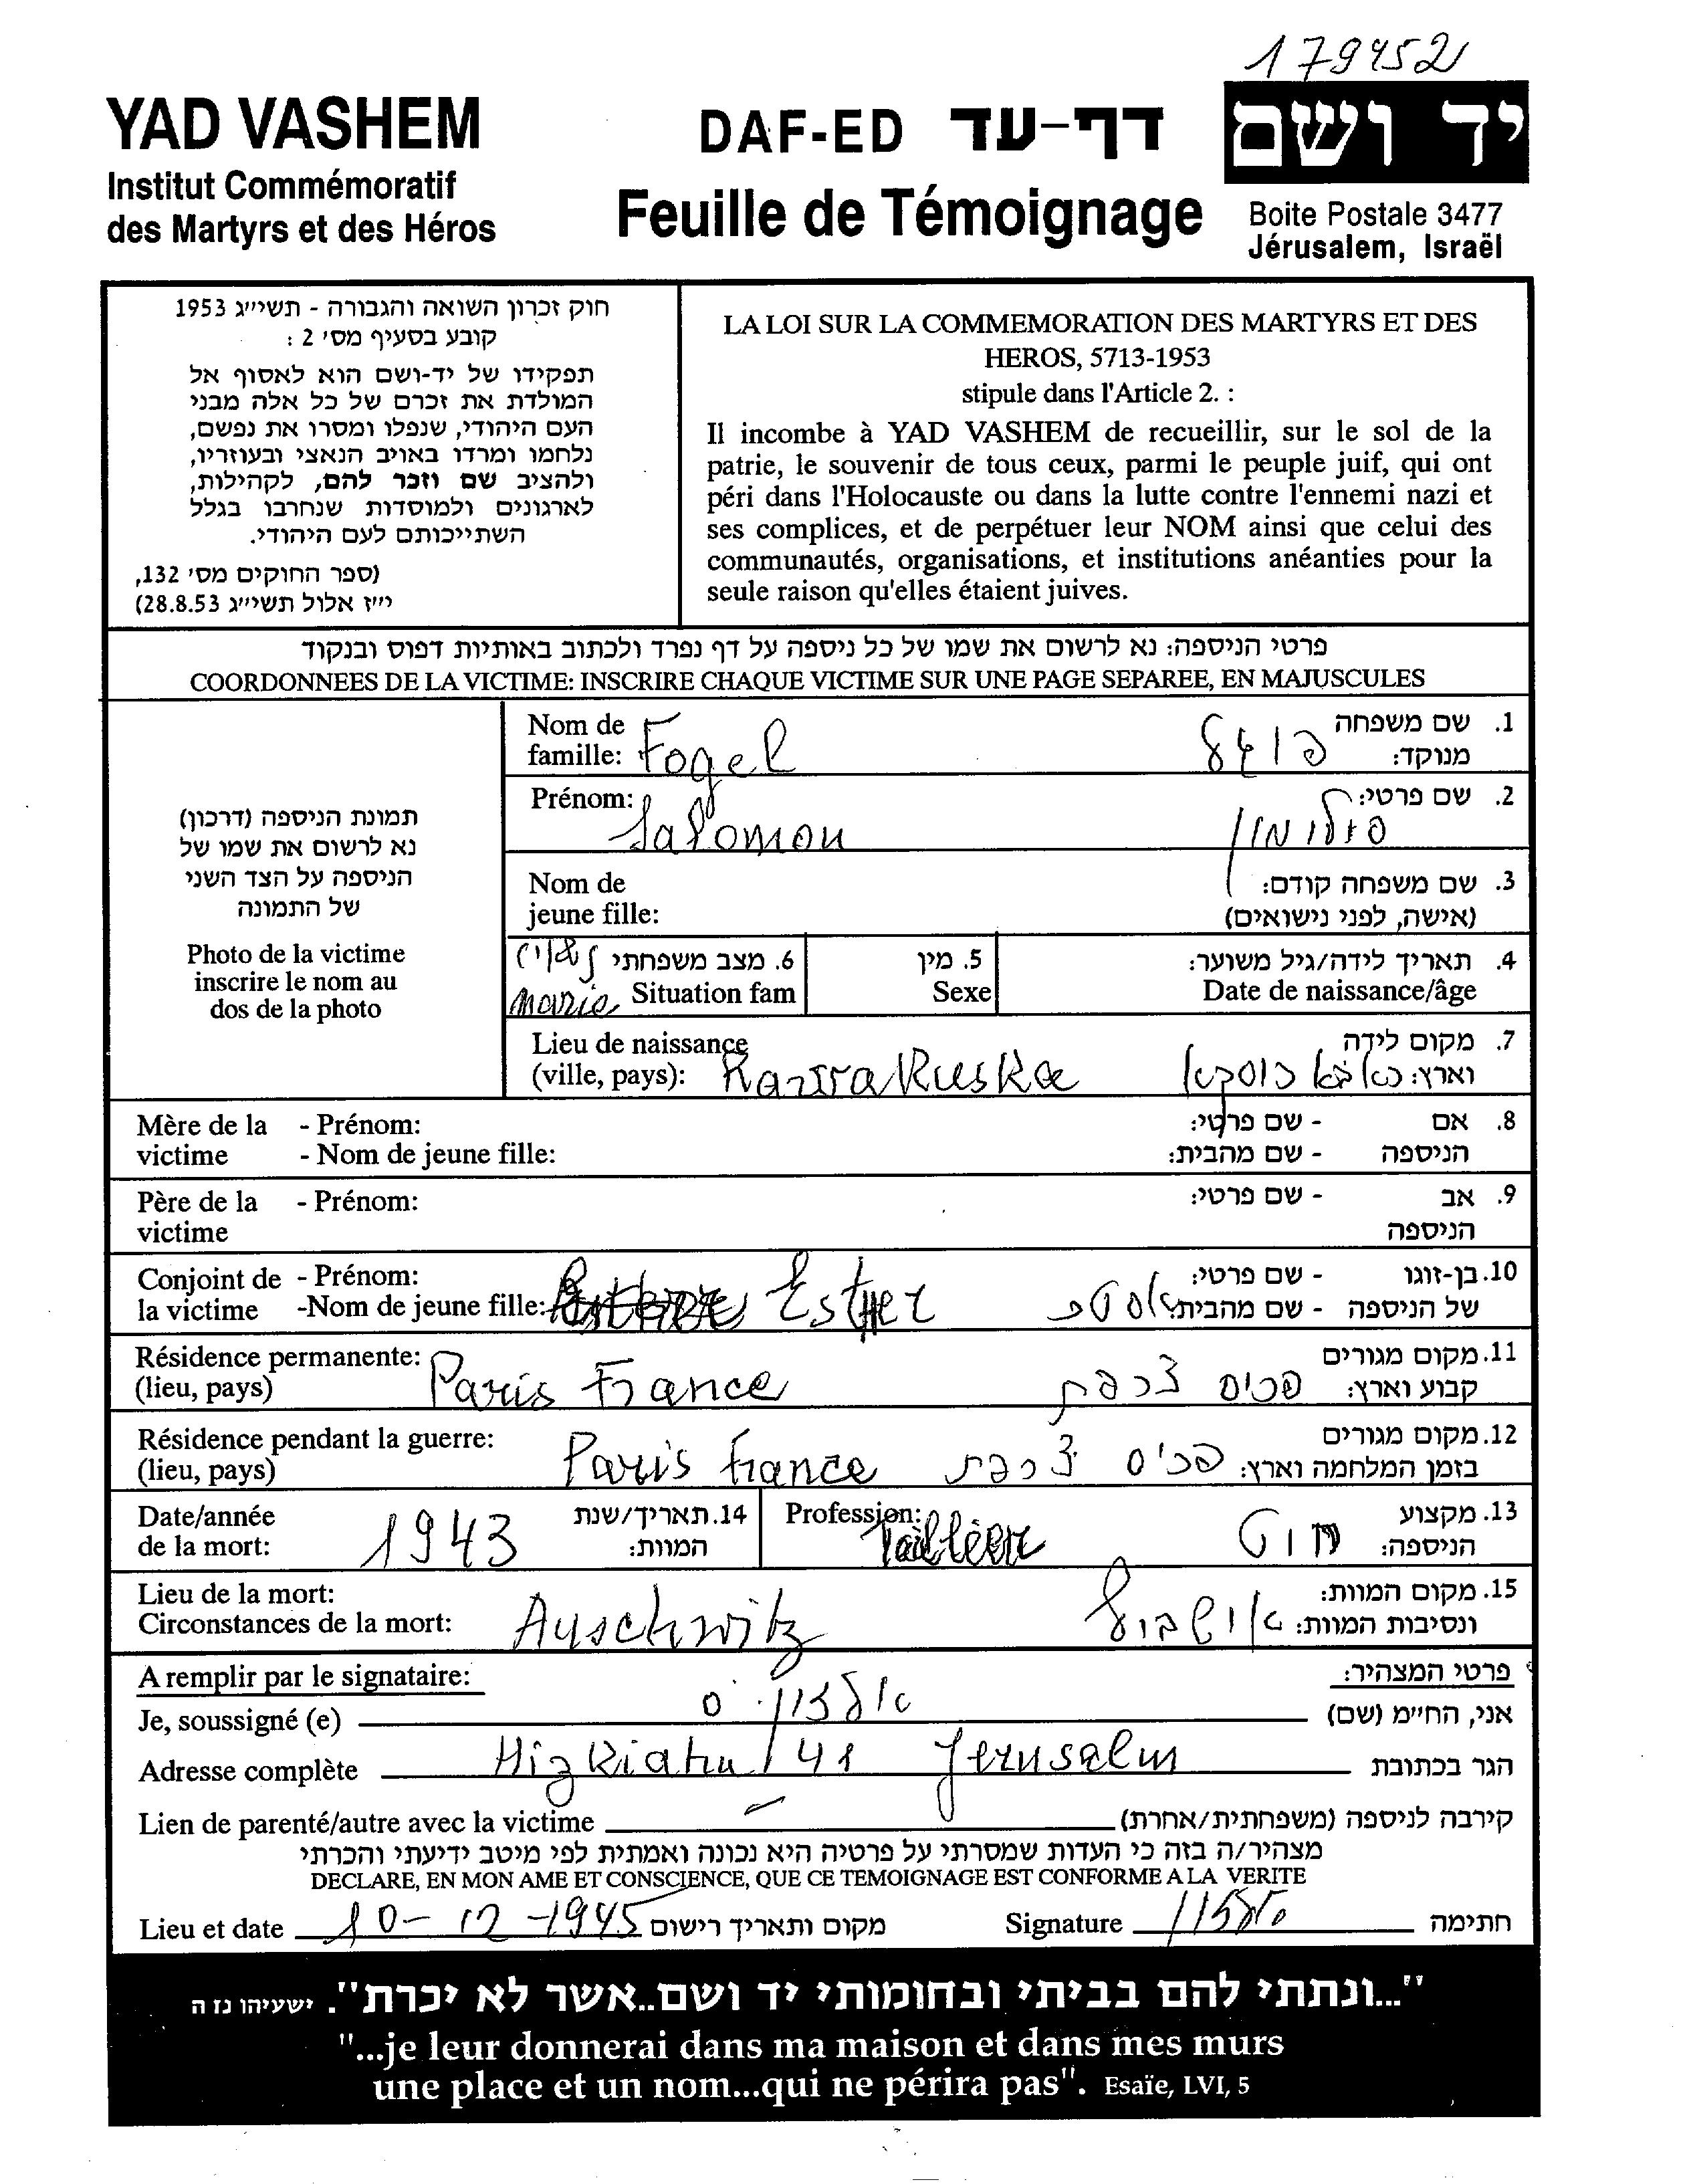 179452
YAD VASHEM
Institut Commémoratif
des Martyrs et des Héros
DAF-ED דף-עד
Feuille de Témoignage
יד ושם
Boite Postale 3477
Jérusalem, Israël
חוק זכרון השואה והגבורה - תשי״ג 1953
קובע בסעיף מס׳ 2 :
תפקידו של יד-ושם הוא לאסוף אל
המולדת את זכרם של כל אלה מבני
העם היהודי, שנפלו ומסרו את נפשם,
נלחמו ומרדו באויב הנאצי ובעוזריו,
ולהציב שם וזכר להם, לקהילות,
לארגונים ולמוסדות שנחרבו בגלל
השתייכותם לעם היהודי.
(ספר החוקים מס׳ 132,
י״ז אלול תשי״ג 28.8.53)
LA LOI SUR LA COMMEMORATION DES MARTYRS ET DES
HEROS, 5713-1953
stipule dans l'Article 2. :
Il incombe à YAD VASHEM de recueillir, sur le sol de la
patrie, le souvenir de tous ceux, parmi le peuple juif, qui ont
péri dans l'Holocauste ou dans la lutte contre l'ennemi nazi et
ses complices, et de perpétuer leur NOM ainsi que celui des
communautés, organisations, et institutions anéanties pour la
seule raison qu'elles étaient juives.
פרטי הניספה: נא לרשום את שמו של כל ניספה על דף נפרד ולכתוב באותיות דפוס ובנקוד
COORDONNEES DE LA VICTIME: INSCRIRE CHAQUE VICTIME SUR UNE PAGE SEPAREE, EN MAJUSCULES
תמונת הניספה (דרכון)
נא לרשום את שמו של
הניספה על הצד השני
של התמונה
Photo de la victime
inscrire le nom au
dos de la photo
Nom de famille: Fogel פוגל 1. שם משפחה מנוקד:
Prénom: Salomon סולומון 2. שם פרטי:
Nom de jeune fille: 3. שם משפחה קודם: (אישה, לפני נישואים)
נשוי 6. מצב משפחתי
marie Situation fam
5. מין
Sexe
4. תאריך לידה/גיל משוער:
Date de naissance/âge
Lieu de naissance (ville, pays): 7. מקום לידה וארץ:
Mère de la victime - Prénom: - שם פרטי: 8. אם הניספה
- Nom de jeune fille: - שם מהבית:
Père de la victime - Prénom: - שם פרטי: 9. אב הניספה
Conjoint de la victime - Prénom: - שם פרטי: 10. בן-זוגו של הניספה
-Nom de jeune fille: Esther אסתר - שם מהבית:
Résidence permanente: (lieu, pays) Paris France פריס צרפת 11. מקום מגורים קבוע וארץ:
Résidence pendant la guerre: (lieu, pays) Paris France פריס צרפת 12. מקום מגורים בזמן המלחמה וארץ:
Date/année de la mort: 1943 14. תאריך/שנת המוות:
Profession: חיט 13. מקצוע הניספה:
Lieu de la mort: 15. מקום המוות:
Circonstances de la mort: Auschwitz ונסיבות המוות:
A remplir par le signataire: פרטי המצהיר:
Je, soussigné (e) אני, החי״מ (שם)
Adresse complète Hizkiahu 41 Jerusalm הגר בכתובת
Lien de parenté/autre avec la victime קירבה לניספה (משפחתית/אחרת)
מצהיר/ה בזה כי העדות שמסרתי על פרטיה היא נכונה ואמתית לפי מיטב ידיעתי והכרתי
DECLARE, EN MON AME ET CONSCIENCE, QUE CE TEMOIGNAGE EST CONFORME A LA VERITE
Lieu et date מקום ותאריך רישום Signature חתימה
"...ונתתי להם בביתי ובחומותי יד ושם..אשר לא יכרת". ישעיהו נז ה
"...je leur donnerai dans ma maison et dans mes murs
une place et un nom...qui ne périra pas". Esaïe, LVI, 5